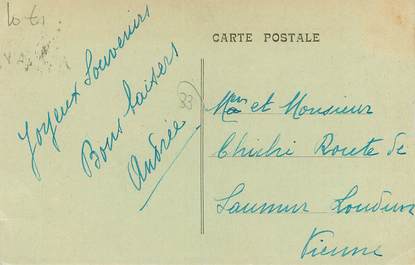 10 €
CARTE POSTALE
Joyeux Souvenirs
Bons baisers
Andrée
33
et Monsieur
Route de
Saumur Loudun
Vienne